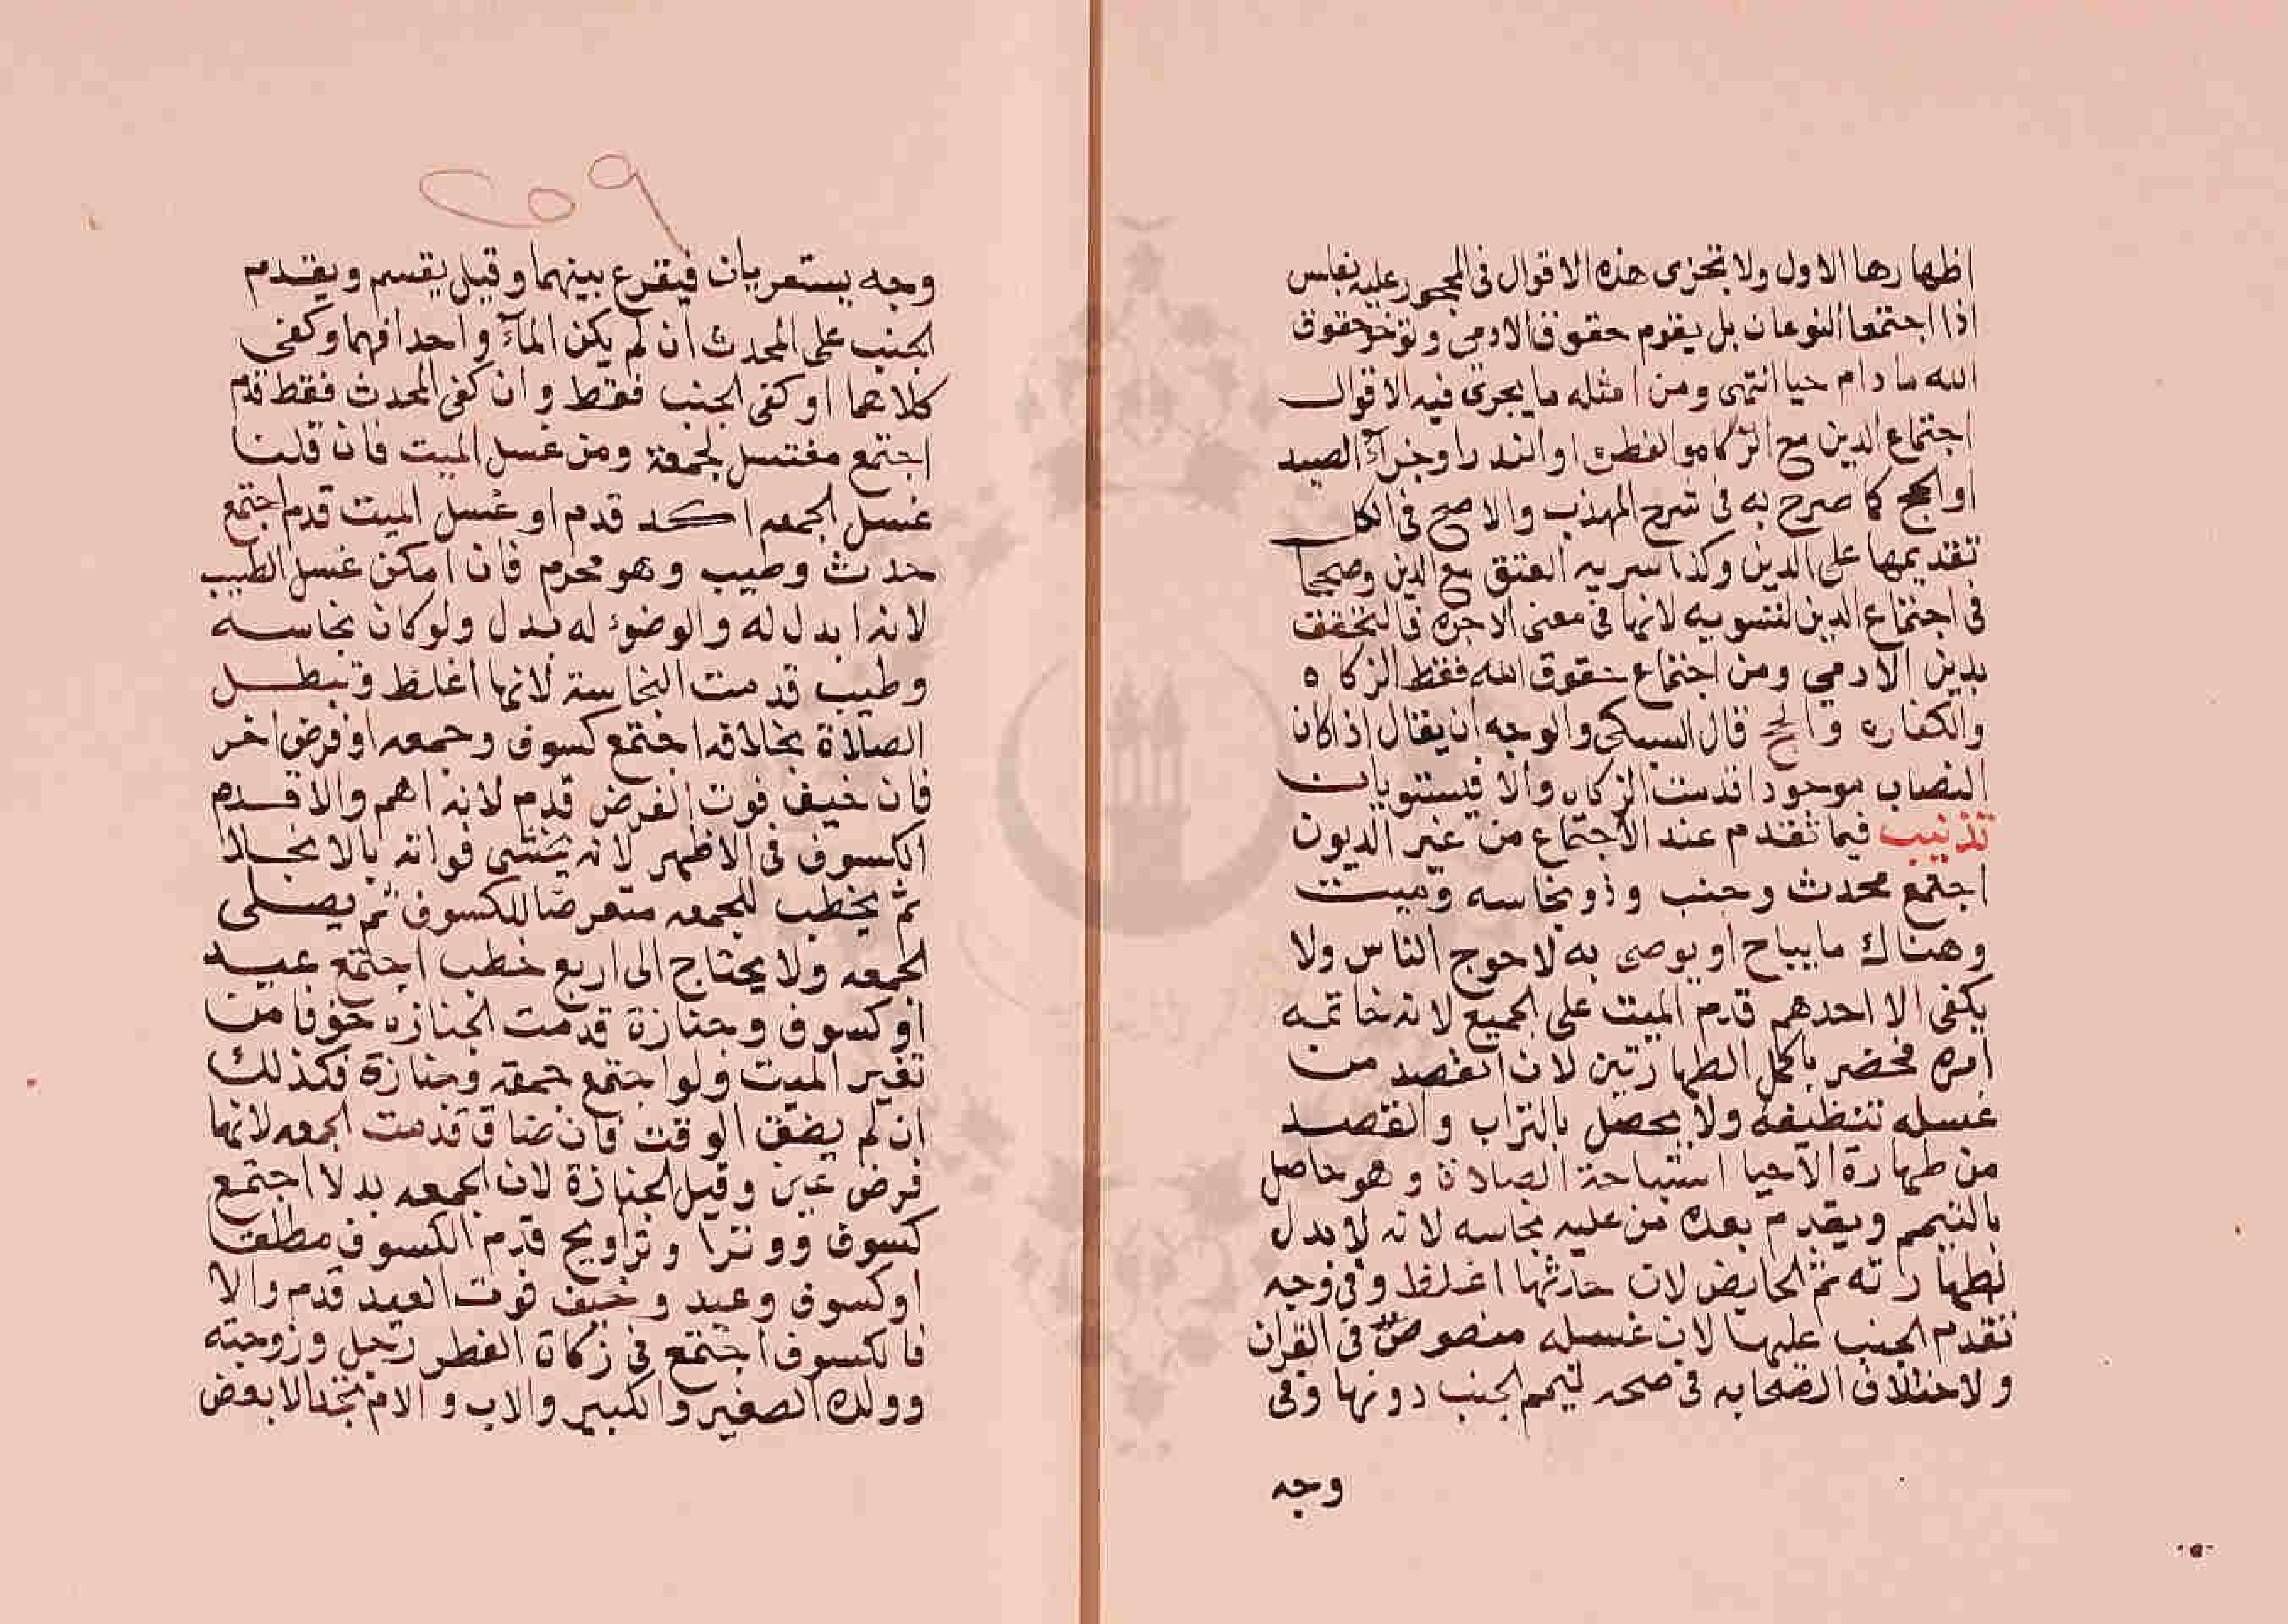 اظهارها الاول ولا تجزى هذه الاقوال فى المحجور عليه بفلس
اذا اجتمعا النوعان بل يقوم حقوق الادمى وتوخر حقوق
الله ما دام حيا انتهى ومن امثله ما يجرى فيه الاقوال
اجتماع الدين مع الزكاه والفطره او النذر او جزآء الصيد
او الحج كما صرح به فى شرح المهذب والاصح فى الكل
تقديمها على الدين وكذا سريه العتق مع الدين وصححا
فى اجتماع الدين التسويه لانها فى معنى الاجره فالتحقت
بدين الآدمي ومن اجتماع حقوق الله فقط الزكاه
والكفاره والحج قال السبكى والوجه ان يقال اذ اكان
النصاب موجودا قدمت الزكاه والا فيستويان
تذنيب فيما تقدم عند الاجتماع من غير الديون
اجتمع محدث وجنب وذو نجاسه وميت
وهناك ما يباح او يوصى به لاحوج الناس ولا
يكفى الا احدهم قدم الميت على الجميع لانه خاتمه
امره فخضر باكمل الطهارتين لان القصد من
غسله تنظيفه ولا يحصل بالتراب والقصد
من طهارة الآحيا استباحة الصلاة وهو حاصل
بالتيمم ويقدم بعده من عليه نجاسه لانه لا بدل
لطهارته ثم الحايض لان حدثها اغلظ وفى وجه
تقدم الجنب عليها لان غسله منصوص فى القران
ولاختلاف الصحابه فى صحه تيمم الجنب دونها وفى
وجه
٢٥٩
وجه يستعريان فيقرع بينهما وقيل يقسم ويقدم
الجنب على المحدث ان لم يكن المآء واحدا فهما وكفى
كلاهما او كفى الجنب فقط وان كفى المحدث فقط قدم
اجتمع مغتسل لجمعة ومن غسل الميت فان قلنا
غسل الجمعه اكد قدم او غسل الميت قدم اجتمع
حدث وطيب وهو محرم فان امكن غسل الطيب
لانه ا بدل له والوضوء له بدل ولو كان نجاسه
وطيب قدمت النجاسة لانها اغلظ وتبطل
الصلاة بخلافه اجتمع كسوف وجمعه او فرض اخر
فان خيف فوت الفرض قدم لانه اهم والا قدم
الكسوف فى الاظهر لانه يخشى فواته بالانجلا
ثم يخطب للجمعه متعرضا للكسوف ثم يصلى
الجمعه ولا يحتاج الى اربع خطب اجتمع عيد
او كسوف وجنازة قدمت الجنازه خوفا من
تغير الميت ولو اجتمع جمعة وجنازة فكذلك
ان لم يضق الوقت فان ضاق قدمت الجمعه لانها
فرض عين وقيل الجنازة لان الجمعه بدلا اجتمع
كسوف ووترا وتراويح قدم الكسوف مطلقا
او كسوف وعيد وخيف فوت العيد قدم والا
فالكسوف اجتمع فى زكاة الفطر رجل وزوجته
وولده الصغير والكبير والاب والام الا بعض